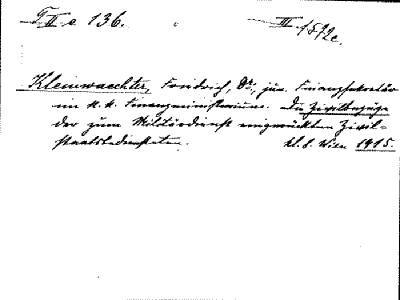 T II e 136. III 1572e.
Kleinwaechter, Friedrich, Dr., jun. Finanzsekretär
im k. k. Finanzministerium. Die Zivilbezüge
der zum Militärdienst eingerückten Zivil-
staatsbediensteten. kl. 8. Wien 1915.